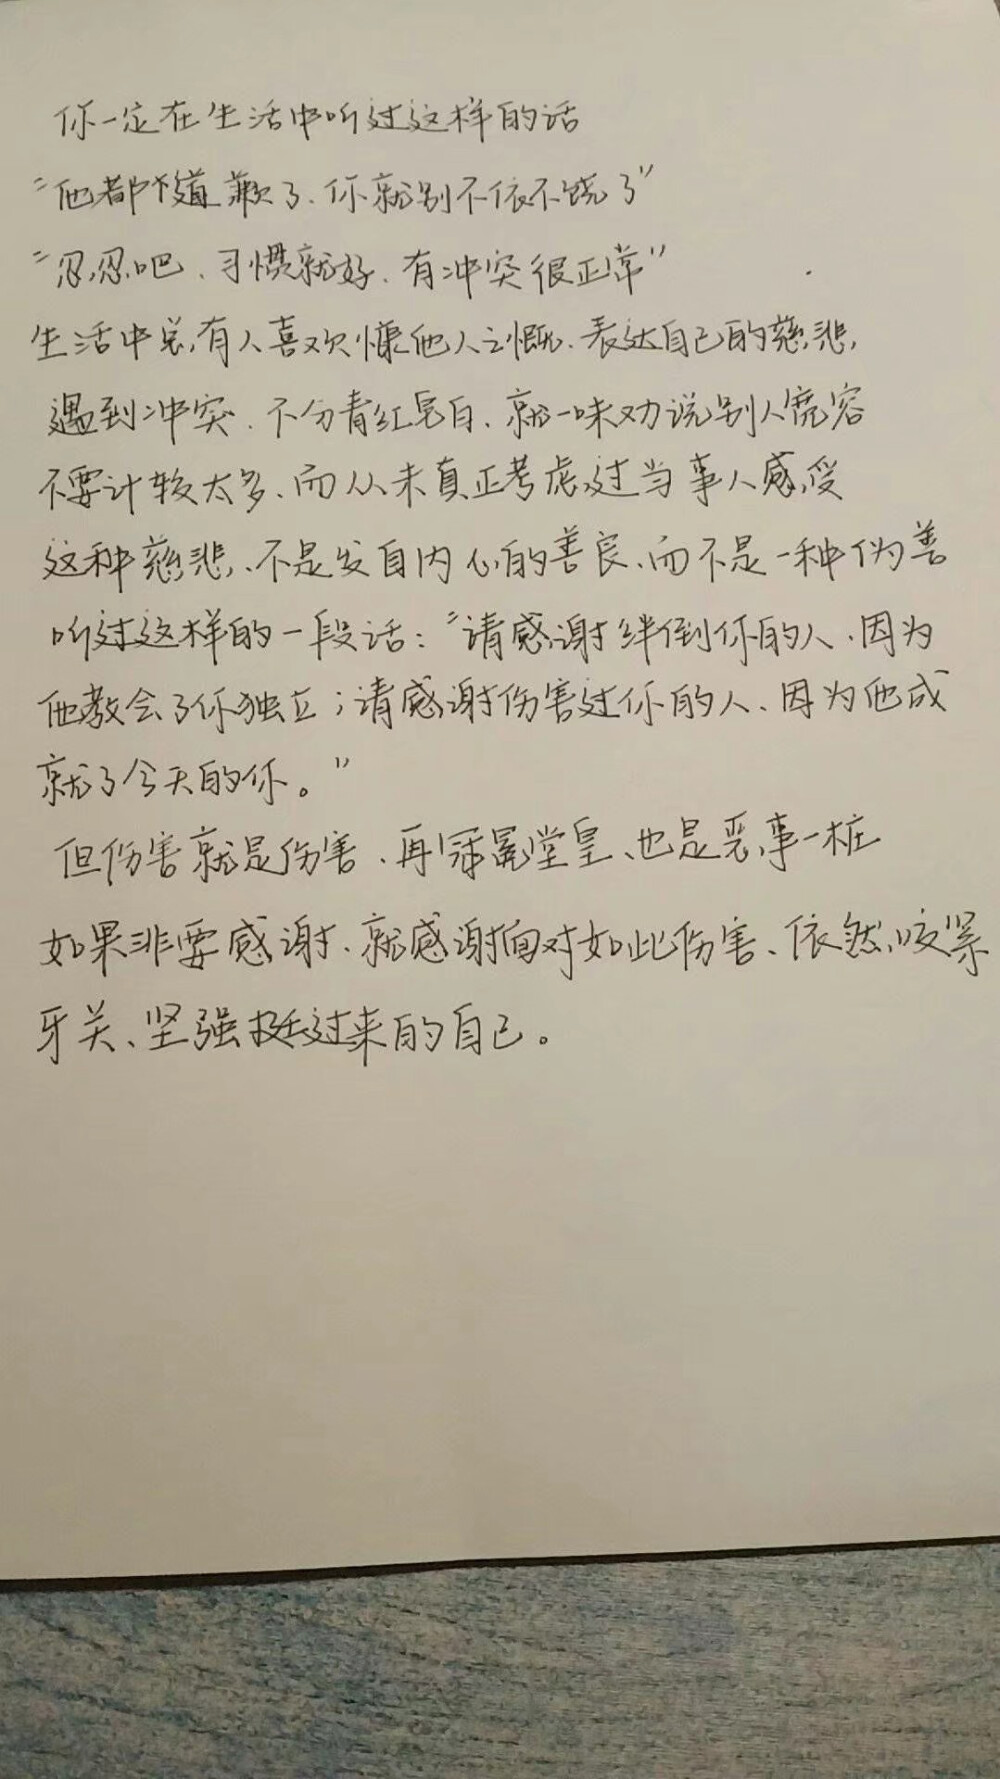 你一定在生活中听过这样的话
“他都道歉了、你就别不依不饶了”
“忍忍吧、习惯就好、有冲突很正常”
生活中总有人喜欢慷他人之慨、表达自己的慈悲,
遇到冲突、不分青红皂白、就一味劝说别人宽容
不要计较太多、而从未真正考虑过当事人感受
这种慈悲、不是发自内心的善良、而不是一种伪善
听过这样的一段话:“请感谢绊倒你的人、因为
他教会了你独立;请感谢伤害过你的人、因为他成
就了今天的你。”
但伤害就是伤害、再冠冕堂皇、也是恶事一桩
如果非要感谢、就感谢面对如此伤害、依然咬紧
牙关、坚强挺过来的自己。